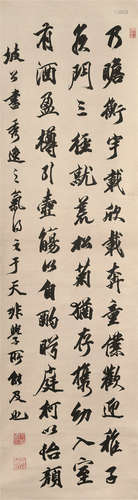 乃瞻衡宇載欣載奔歡迎稚子
候門三徑就荒松菊猶存攜幼入室
有酒盈樽引壺觴以自酌眄庭柯以怡顏
坡公書秀逸之氣得之于天非學所能及也